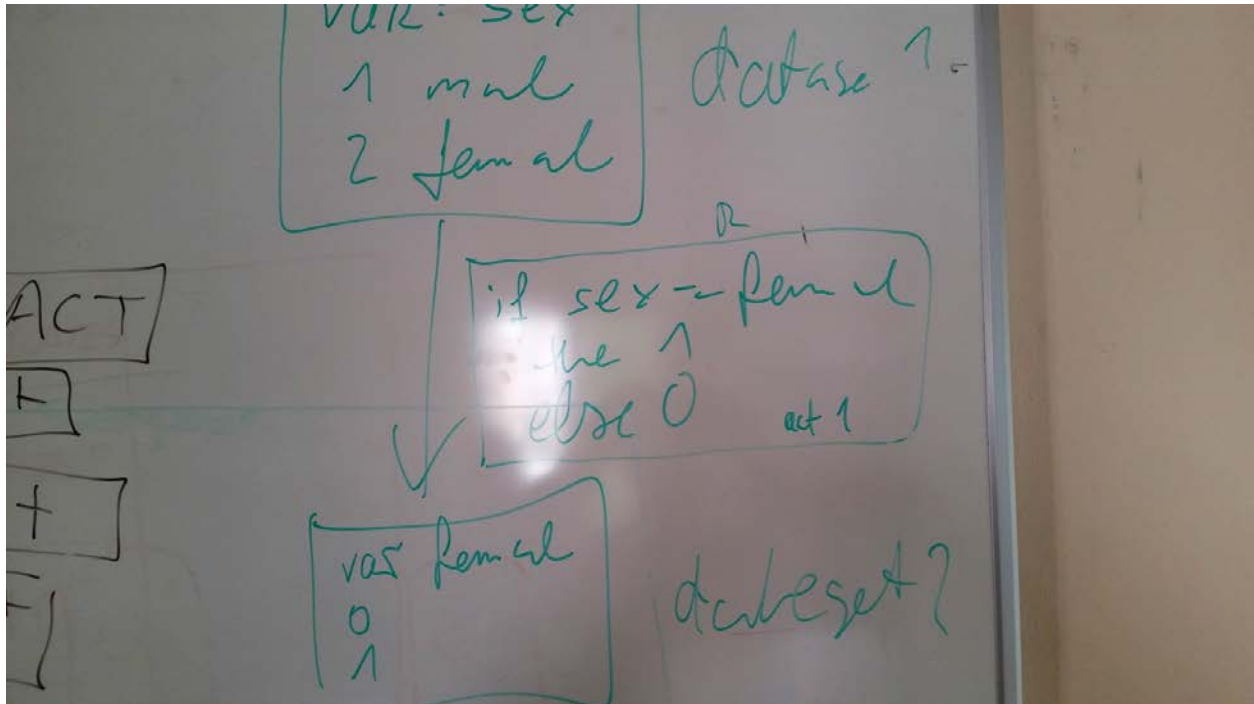 var: sex
1 mal
2 femal
datase 1.
R
if sex = femal
the 1
else 0
act 1
var femal
0
1
dataset 2
ACT
+
+